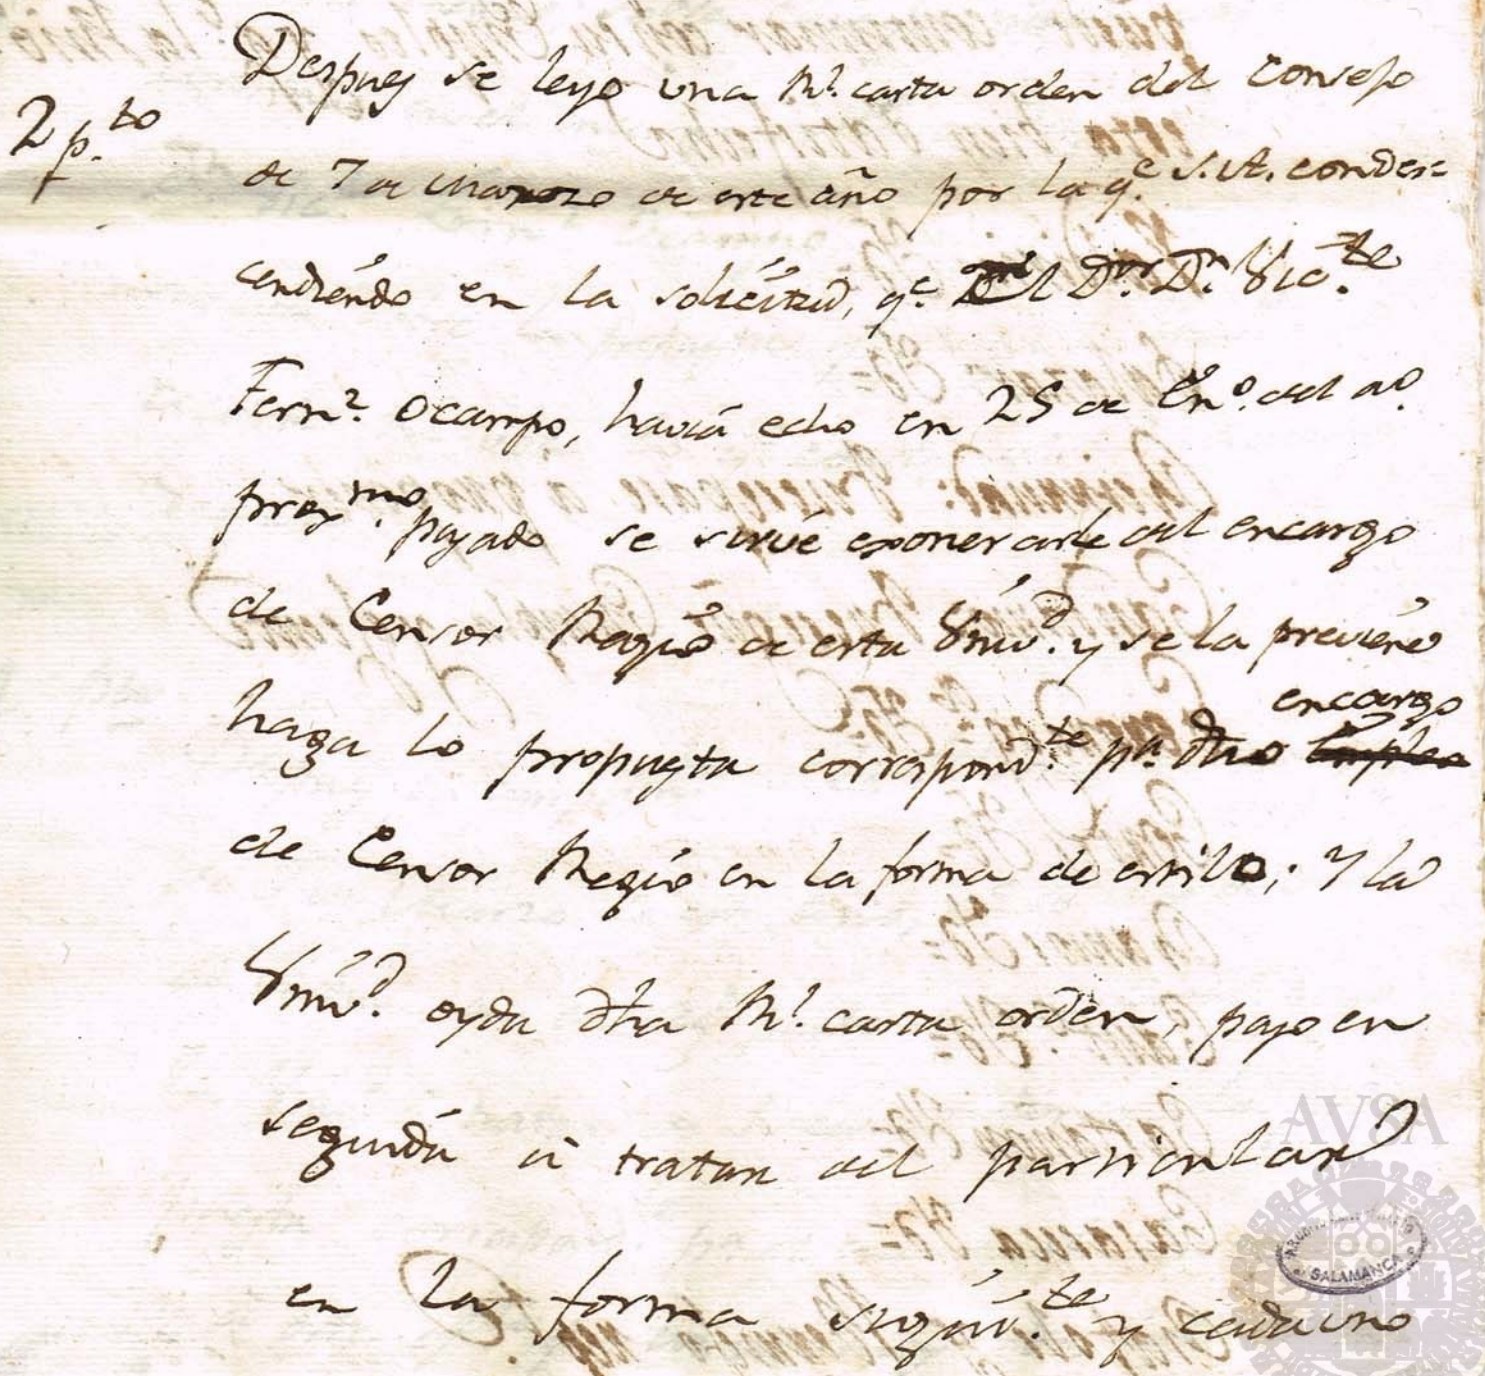 Despues se leyo una Rl. carta orden del Consejo
2 p.to
de 7 de Marzo de este año por la q.e S.A. condes=
cendiendo en la solicitud, q.e el D.or D.n Vic.te
Fern.z Ocampo, havia echo en 25 de En.o del a.o
prox.mo pasado se sirve exonerarle del encargo
de Censor Regio de esta Univ.d y se la previene
encargo
haga la propuesta correspond.te p.a dho empleo
de Censor Regio en la forma de estilo; y la
Univ.d oyda dha Rl. carta orden, paso en
seguida a tratar del particular
en la forma sigui.te y cada uno
AVSA
SALAMANCA